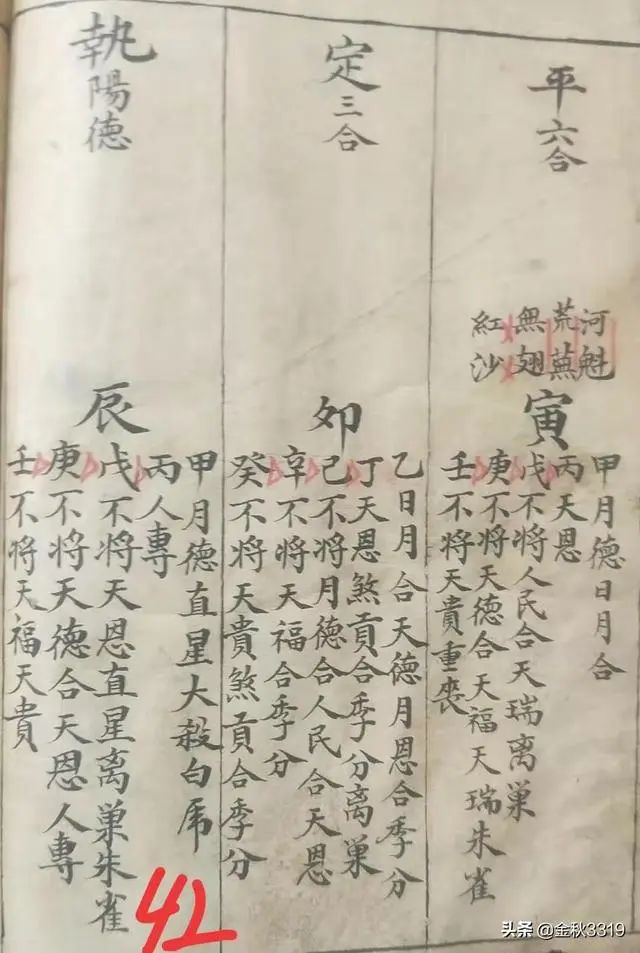 平六合
河魁
荒蕪
無翅
紅沙
寅
甲月德日月合
丙天恩
戊不將人民合天瑞离巢
庚不將天德合天福天瑞朱雀
壬不將天貴重喪
定三合
卯
乙日月合天德月恩合季分
丁天恩煞貢合季分离巢
己不將月德合人民合天恩
辛不將天福合季分
癸不將天貴煞貢合季分
執陽德
辰
甲月德直星大殺白虎
丙人專
戊不將天恩直星离巢朱雀
庚不將天德合天恩人專
壬不將天福天貴
42
头条 @金秋3319